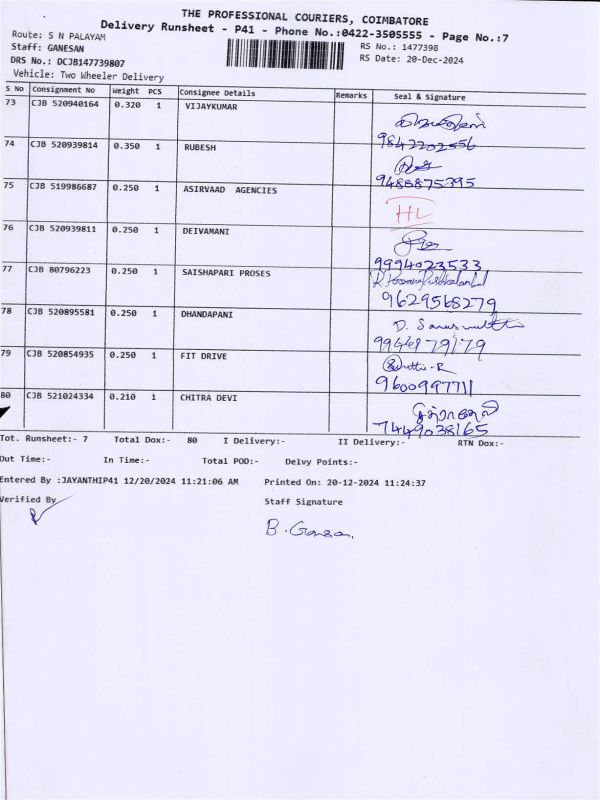 THE PROFESSIONAL COURIERS, COIMBATORE
Delivery Runsheet - P41 - Phone No.:0422-3505555 - Page No.:7
Route: S N PALAYAM
RS No.: 1477398
Staff: GANESAN
RS Date: 20-Dec-2024
DRS No.: DCJB147739807
Vehicle: Two Wheeler Delivery
S No Consignment No Weight PCS Consignee Details Remarks Seal & Signature
73 CJB 520940164 0.320 1 VIJAYKUMAR
9842202556
74 CJB 520939814 0.350 1 RUBESH
9488875395
75 CJB 519986687 0.250 1 ASIRVAAD AGENCIES
HL
76 CJB 520939811 0.250 1 DEIVAMANI
9994023533
77 CJB 80796223 0.250 1 SAISHAPARI PROSES
9629568279
78 CJB 520895581 0.250 1 DHANDAPANI
79 CJB 520854935 0.250 1 FIT DRIVE
9600997711
80 CJB 521024334 0.210 1 CHITRA DEVI
7449038165
Tot. Runsheet:- 7 Total Dox:- 80 I Delivery:- II Delivery:- RTN Dox:-
Out Time:- In Time:- Total POD:- Delvy Points:-
Entered By :JAYANTHIP41 12/20/2024 11:21:06 AM Printed On: 20-12-2024 11:24:37
Verified By Staff Signature